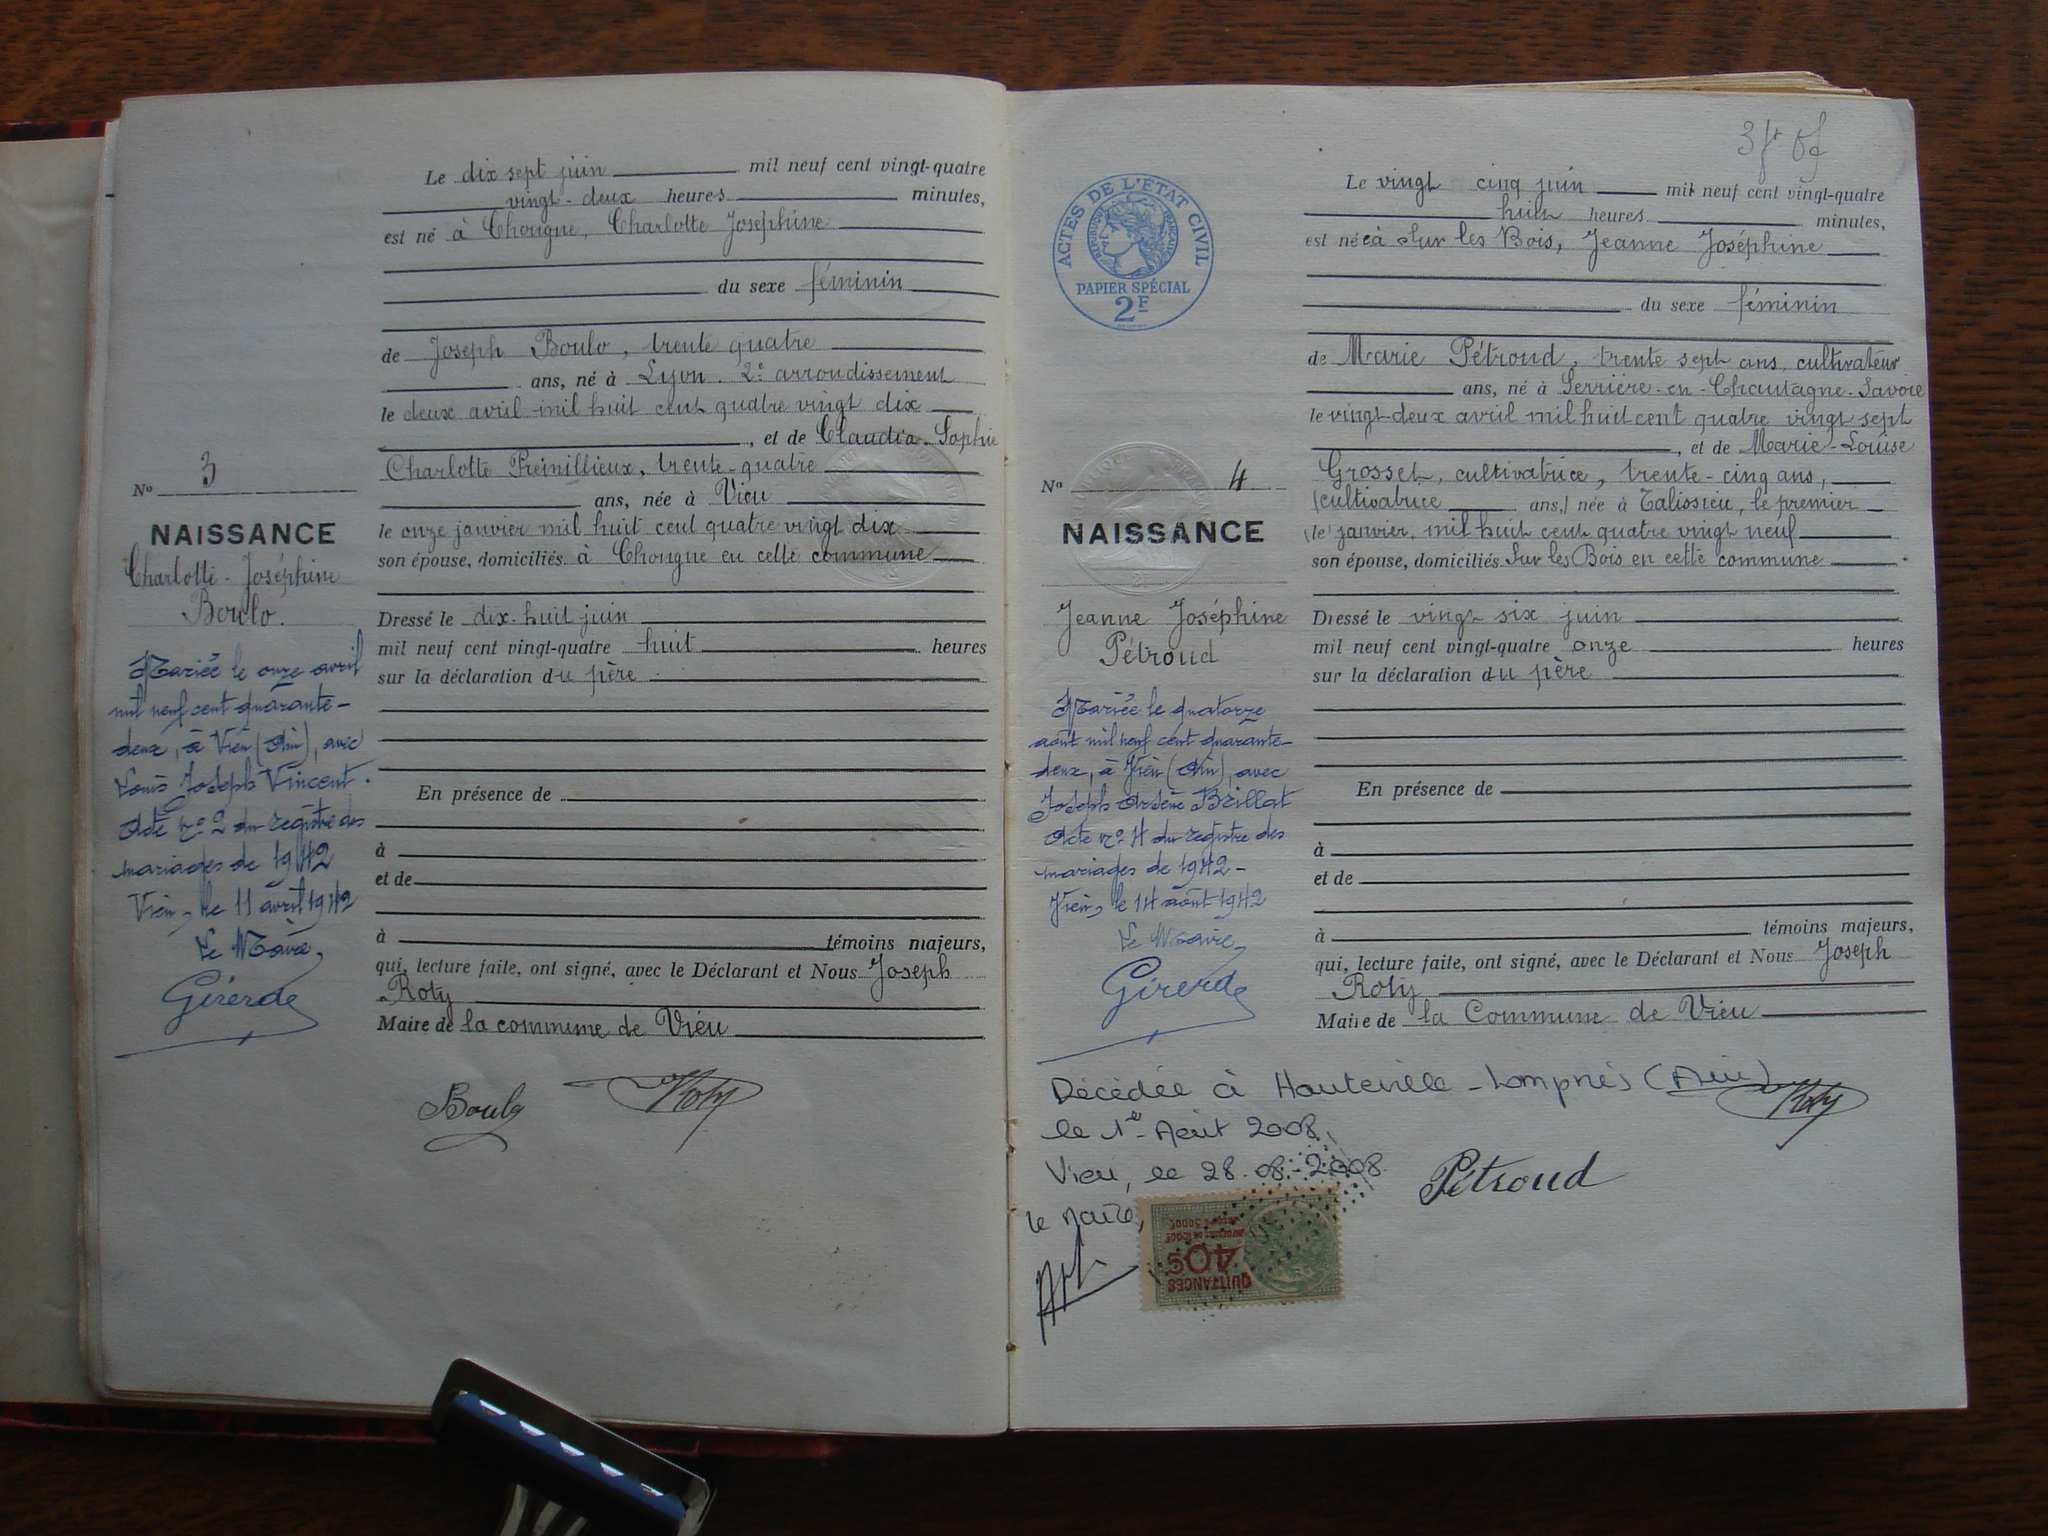 Le dix sept juin mil neuf cent vingt-quatre
vingt-deux heures minutes,
est né à Chongne, Charlotte Joséphine
du sexe féminin
de Joseph Boulo, trente quatre
ans, né à Lyon. 2e arrondissement
le deux avril mil huit cent quatre vingt dix
, et de Claudia-Sophie
Charlotte Preinillieux, trente-quatre
ans, née à Vieu
le onze janvier mil huit cent quatre vingt dix
son épouse, domiciliés à Chongne en cette commune
Dressé le dix-huit juin
mil neuf cent vingt-quatre huit heures
sur la déclaration du père
En présence de
à
et de
à témoins majeurs,
qui, lecture faite, ont signé, avec le Déclarant et Nous Joseph
Roty
Maire de la commune de Vieu
Boulo Roty
No 3
NAISSANCE
Charlotte-Joséphine
Boulo.
Mariée le onze avril
mil neuf cent quarante-
deux, à Vieu (Ain), avec
Louis Joseph Vincent.
Acte no 2 du registre des
mariages de 1942
Vieu, le 11 avril 1942
Le Maire,
Girerde
ACTES DE L'ÉTAT CIVIL
RÉPUBLIQUE FRANÇAISE
PAPIER SPÉCIAL
2F
Le vingt cinq juin mil neuf cent vingt-quatre
huit heures minutes,
est née à Sur les Bois, Jeanne Joséphine
du sexe féminin
de Marie Pétroud, trente sept ans, cultivateur
ans, né à Serrière-en-Chautagne-Savoie
le vingt-deux avril mil huit cent quatre vingt sept
, et de Marie-Louise
Grosset, cultivatrice, trente-cinq ans,
(cultivatrice ans,) née à Talissieu, le premier
(le) janvier, mil huit cent quatre vingt neuf
son épouse, domiciliés Sur les Bois en cette commune
Dressé le vingt-six juin
mil neuf cent vingt-quatre onze heures
sur la déclaration du père
En présence de
à
et de
à témoins majeurs,
qui, lecture faite, ont signé, avec le Déclarant et Nous Joseph
Roty
Maire de la Commune de Vieu
Roty
Pétroud
No 4
NAISSANCE
Jeanne Joséphine
Pétroud
Mariée le quatorze
août mil neuf cent quarante-
deux, à Vieu (Ain), avec
Joseph Arsène Brillat
Acte no 4 du registre des
mariages de 1942-
Vieu, le 14 août 1942
Le Maire,
Girerde
Décédée à Hauteville-Lompnès (Ain)
le 1er Août 2008,
Vieu, le 28-08-2008
le Maire,
QUITTANCES
40c